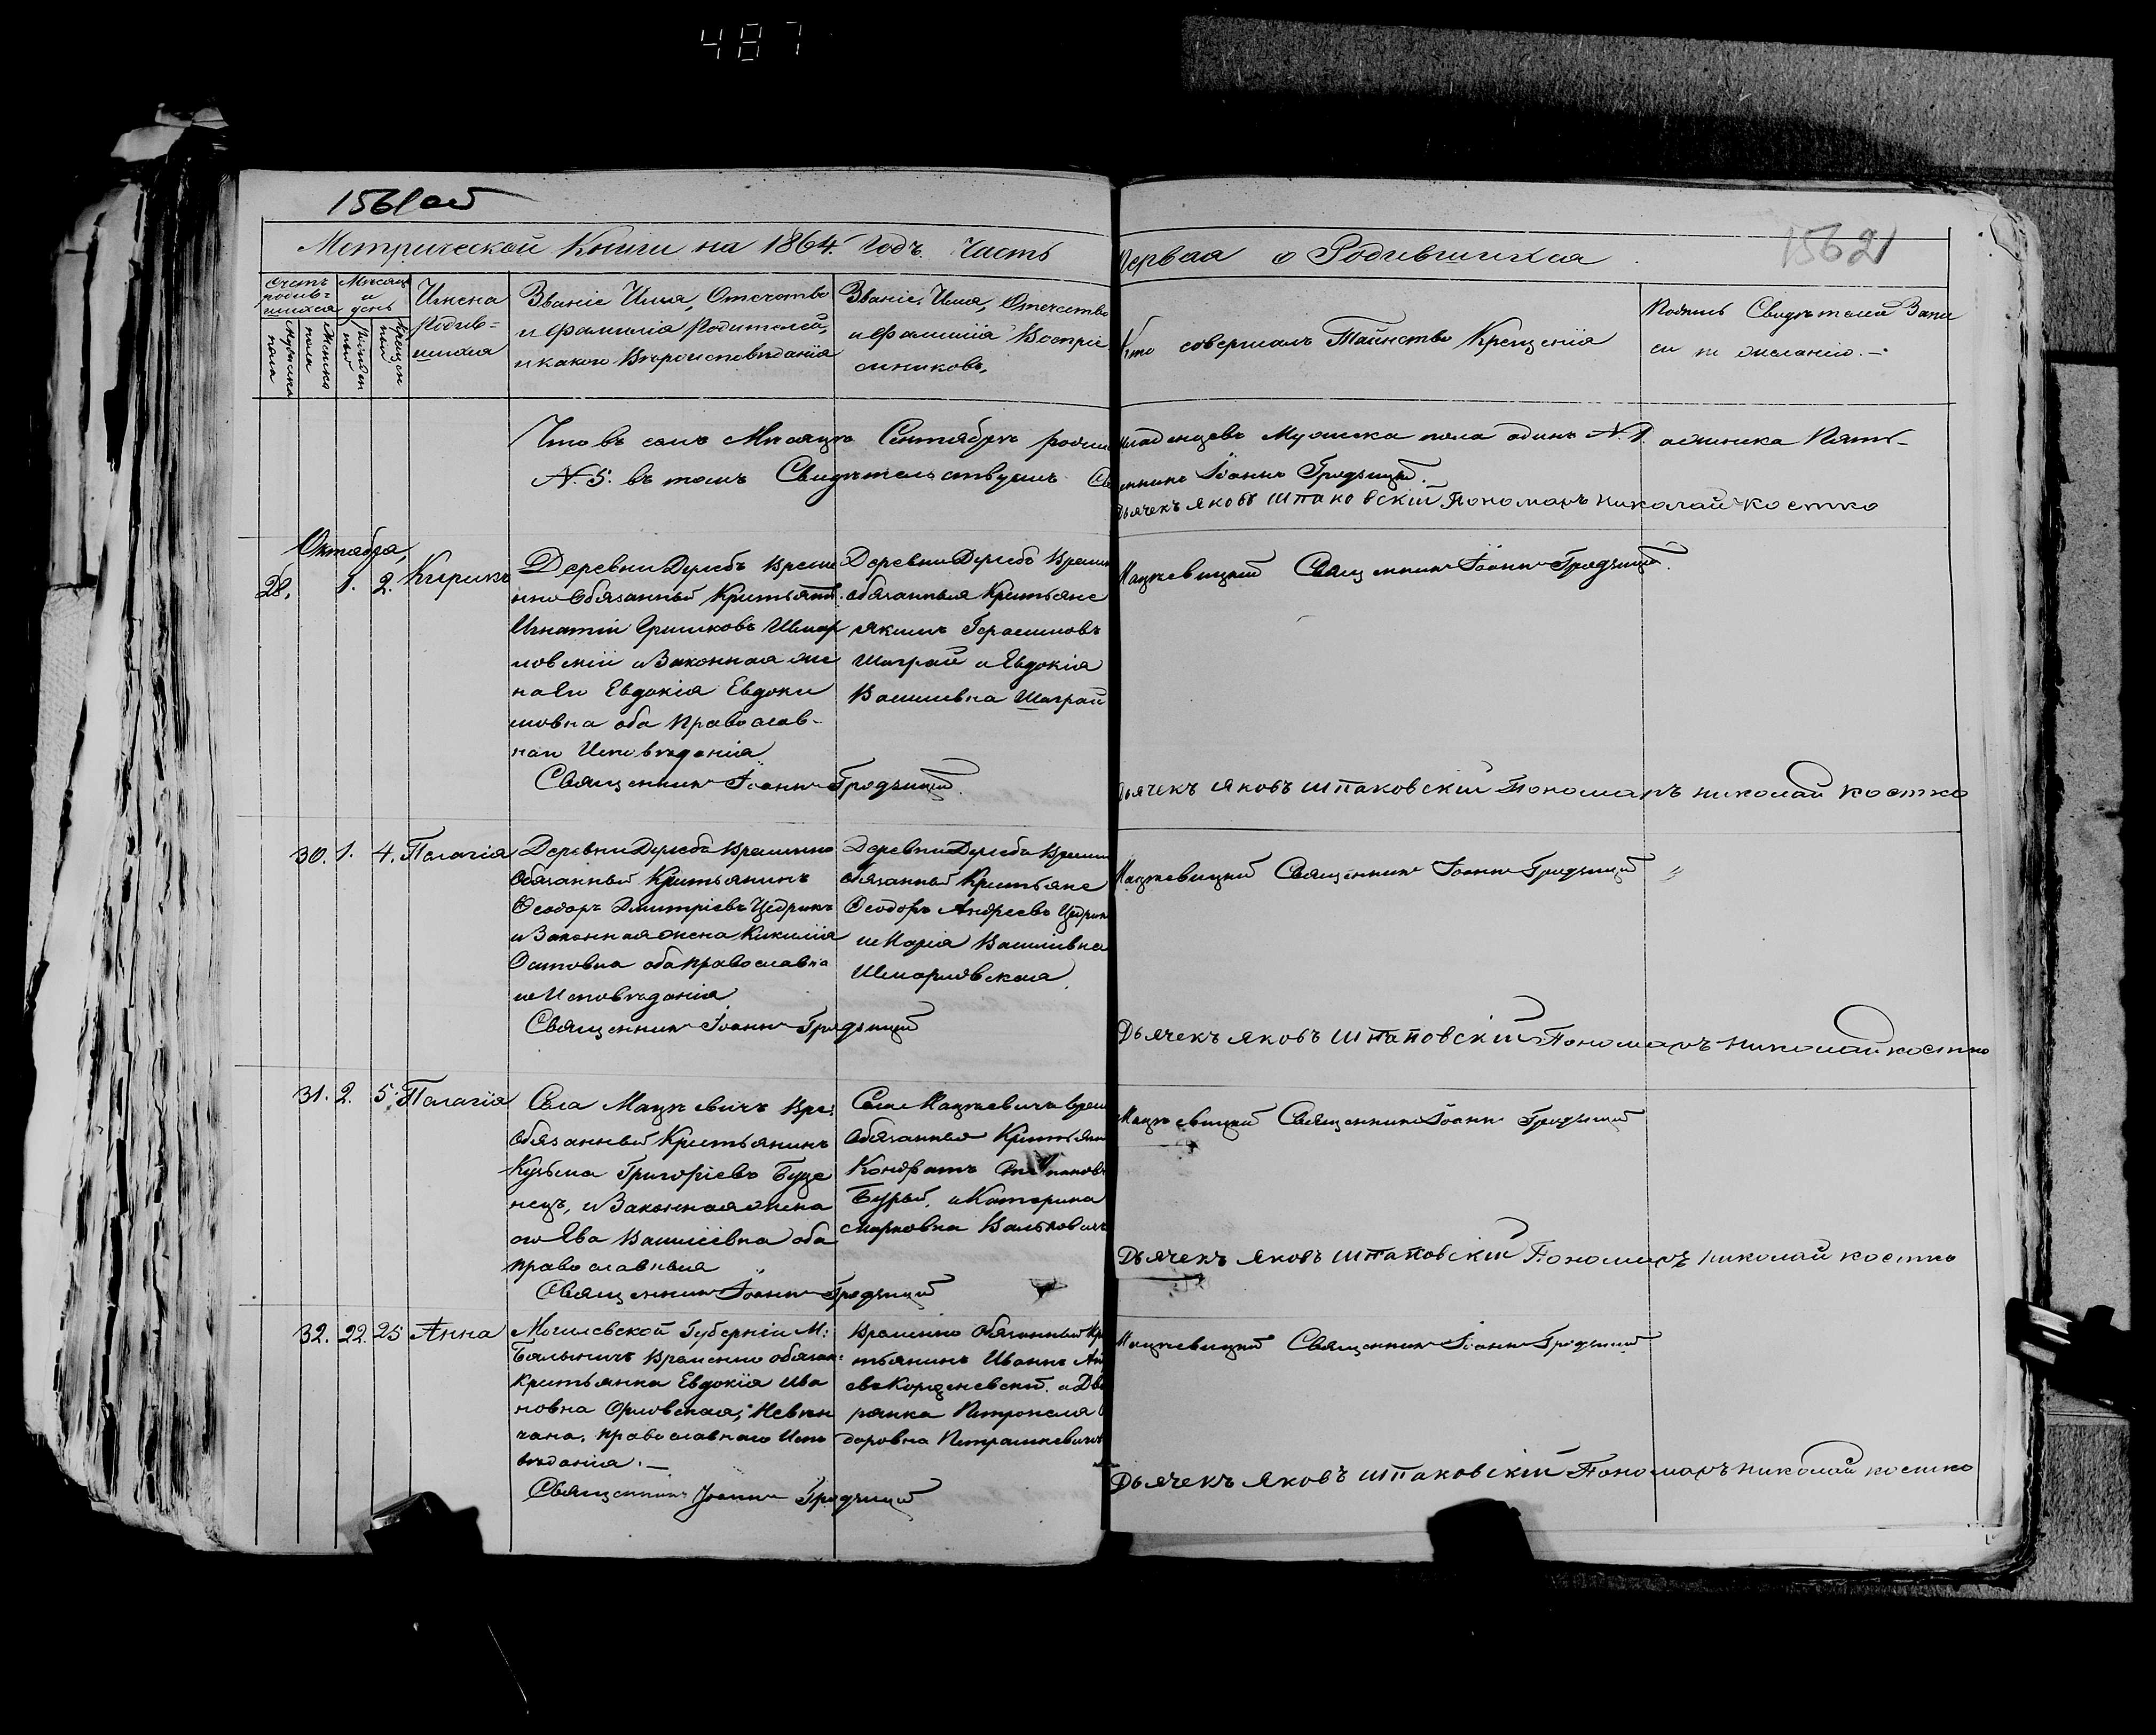 487
1561 об
15621
Метрической Книги на 1864. Годъ. Часть Первая о Родившихся
Счетъ родив=шихся
Мужеска пола
Женска пола
Месяцъ и день
Рожден ія
Крещен ія
Имена
Родив=
шихся
Званіе Имя, Отечество
и Фамилія Родителей,
и какого Вѣроисповѣданія
Званіе, Имя, Отечество
и Фамилія Воспріе
мниковъ.
Кто совершалъ Таинство Крещенія
Подпись Свидѣтелей Запи
си по желанію.-
Что въ семъ Мѣсяцѣ Сентябрѣ родил младенцевъ Мужеска пола одинъ N. 1. а женска Пять-
N. 5. въ томъ Свидѣтельствуемъ Священникъ Іоаннъ Гродзицкій.
Дьячекъ Яковъ Шпаковскій Пономарь Николай Костко
Октября,
28. 1. 2. Кирикъ
Деревни Дулебъ Време
нно Обязанный Крестьян.
Игнатій
ловскій и Законная же
на Его Евдокія Евдоки
мовна оба Православ-
наго Исповѣданія
Священникъ Іоаннъ Гродзицкій.
Деревни Дулебъ Времен
обязанныя Крестьяне
Якимъ Герасимовъ
Шаграй и Евдокія
Василевна Шаграй
Мацкевицкій Священникъ Іоаннъ Гродзицкій.
Дьячекъ Яковъ Шпаковскій Пономарь Николай Костко
30. 1. 4. Пелагія
Деревни Дулеба Временно
Обязанный Крестьянинъ
Ѳеодоръ Дмитріевъ Цедрикъ
и Законная жена Кикилія
оба православна
го Исповѣданія
Священникъ Іоаннъ Гродзицкій
Деревни Дулеба Времен
обязанный Крестьяне
Ѳеодоръ Андреевъ Цедрик
и Марія Василіевна
Шмарловская.
Мацкевицкій Священникъ Іоаннъ Гродзицкій "
Дьячекъ Яковъ Шпаковскій Пономарь Николай Костко
31. 2. 5. Пелагія
Села Мацкевичъ Вре:
Обязанный Крестьянинъ
Кузьма Григоріевъ Буде
нецъ, и Законная жена
его Ева Василіевна оба
православныя
Священникъ Іоаннъ Гродзицкій
Села Мацкевичъ врем
Обязанныя Крестьян
Кондратъ Степановъ
Бурый, и Катерина
Марковна Валькович
Мацкевицкій Священникъ Іоаннъ Гродзицкій
Дьячекъ Яковъ Шпаковскій Пономарь Николай Костко
32. 22. 25 Анна
Могилевской Губерніи М:
Бялыничъ Временно обязан:
Крестьянка Евдокія Ива
новна Орловская, Невѣн
чана, православнаго Испо
вѣданія.-
Священникъ Іоаннъ Гродзицкій
Временно Обязанный Кре
стьянинъ Иванъ Ан
евъ Корзеневскій. и Дво
рянка Петронеля
доровна Петрашкевичъ
Мацкевицкій Священникъ Іоаннъ Гродзицкій
Дьячекъ Яковъ Шпаковскій Пономарь Николай Костко